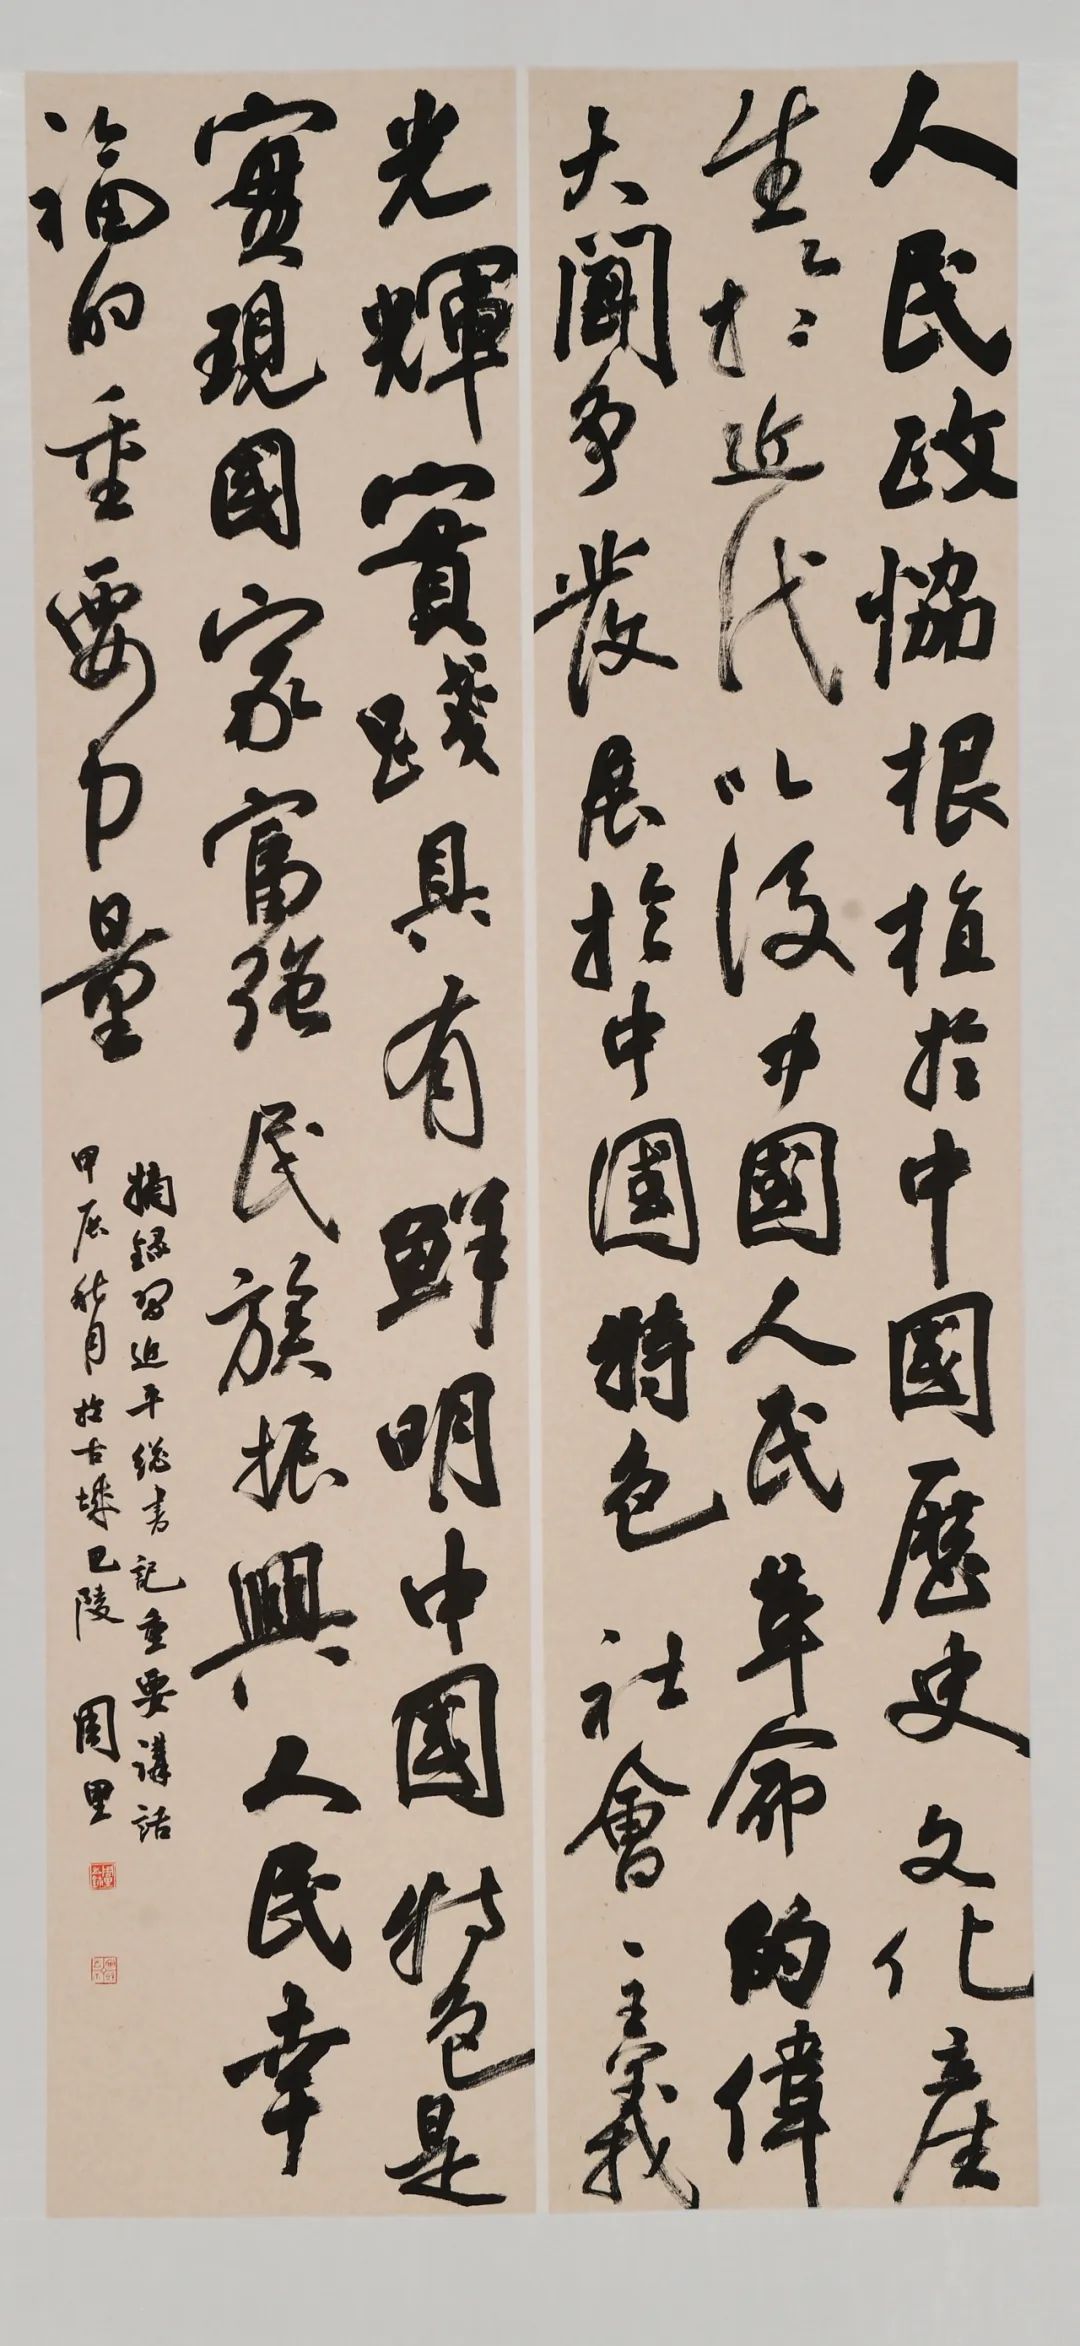 人民政協根植於中國歷史文化產
生於近代以後中國人民革命的偉
大闘争發展於中國特色社會主義
光輝實踐具有鮮明中國特色是
實現國家富强民族振興人民幸
福的重要力量
摘録習近平總書記重要講話
甲辰秋月於古城巴陵 周里